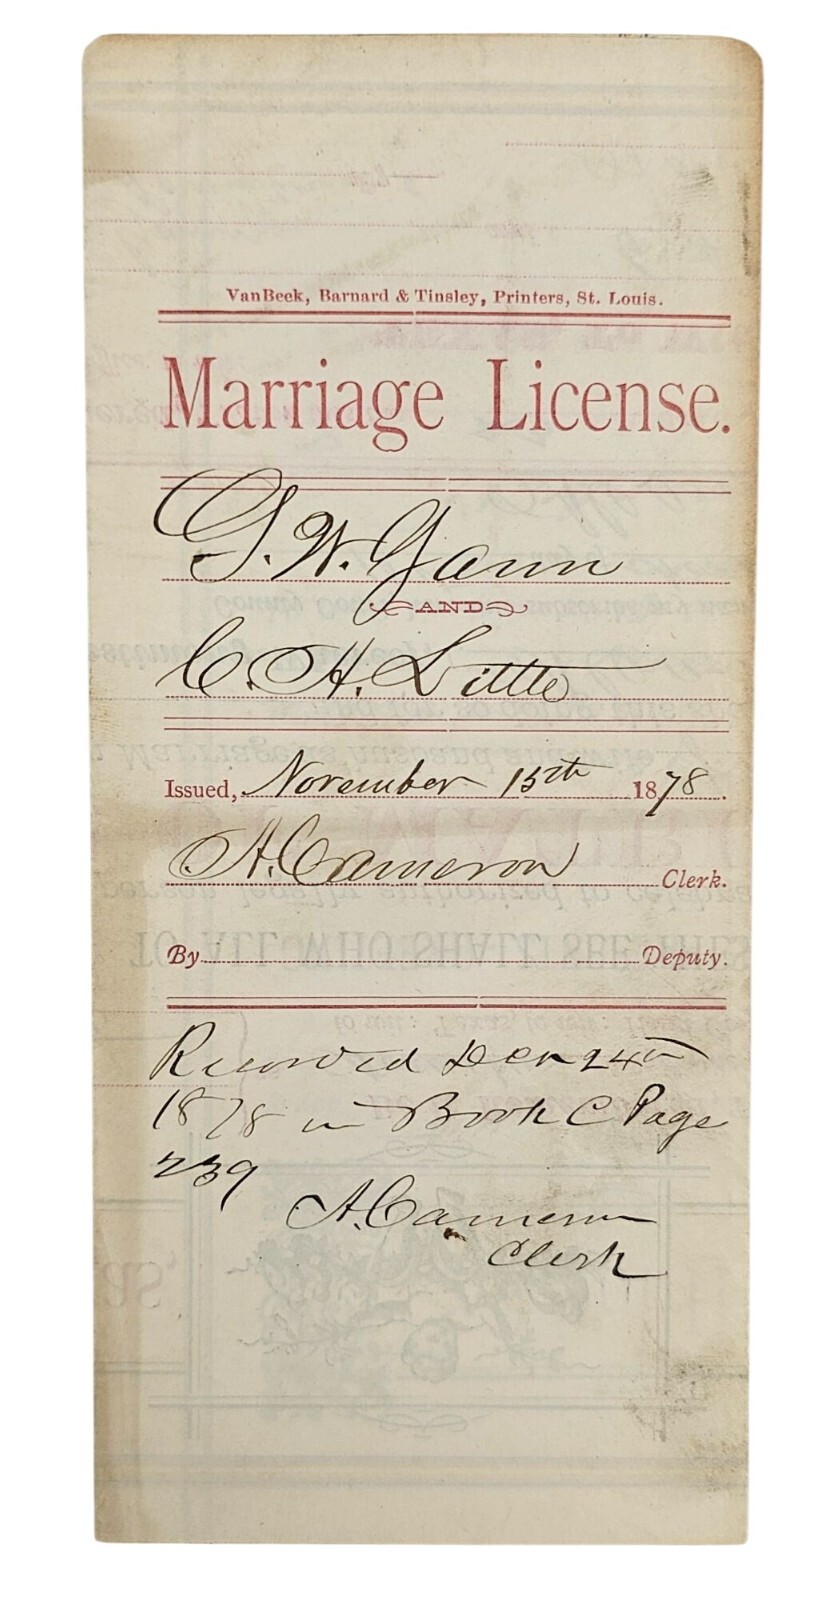 VanBeek, Barnard & Tinsley, Printers, St. Louis.
Marriage License.
G. W. Gann
AND
C. H. Little
Issued, November 15th 1878.
A. Cameron Clerk.
By Deputy.
Recorded Dec 24th
1878 in Book C Page
239
A. Cameron
Clerk